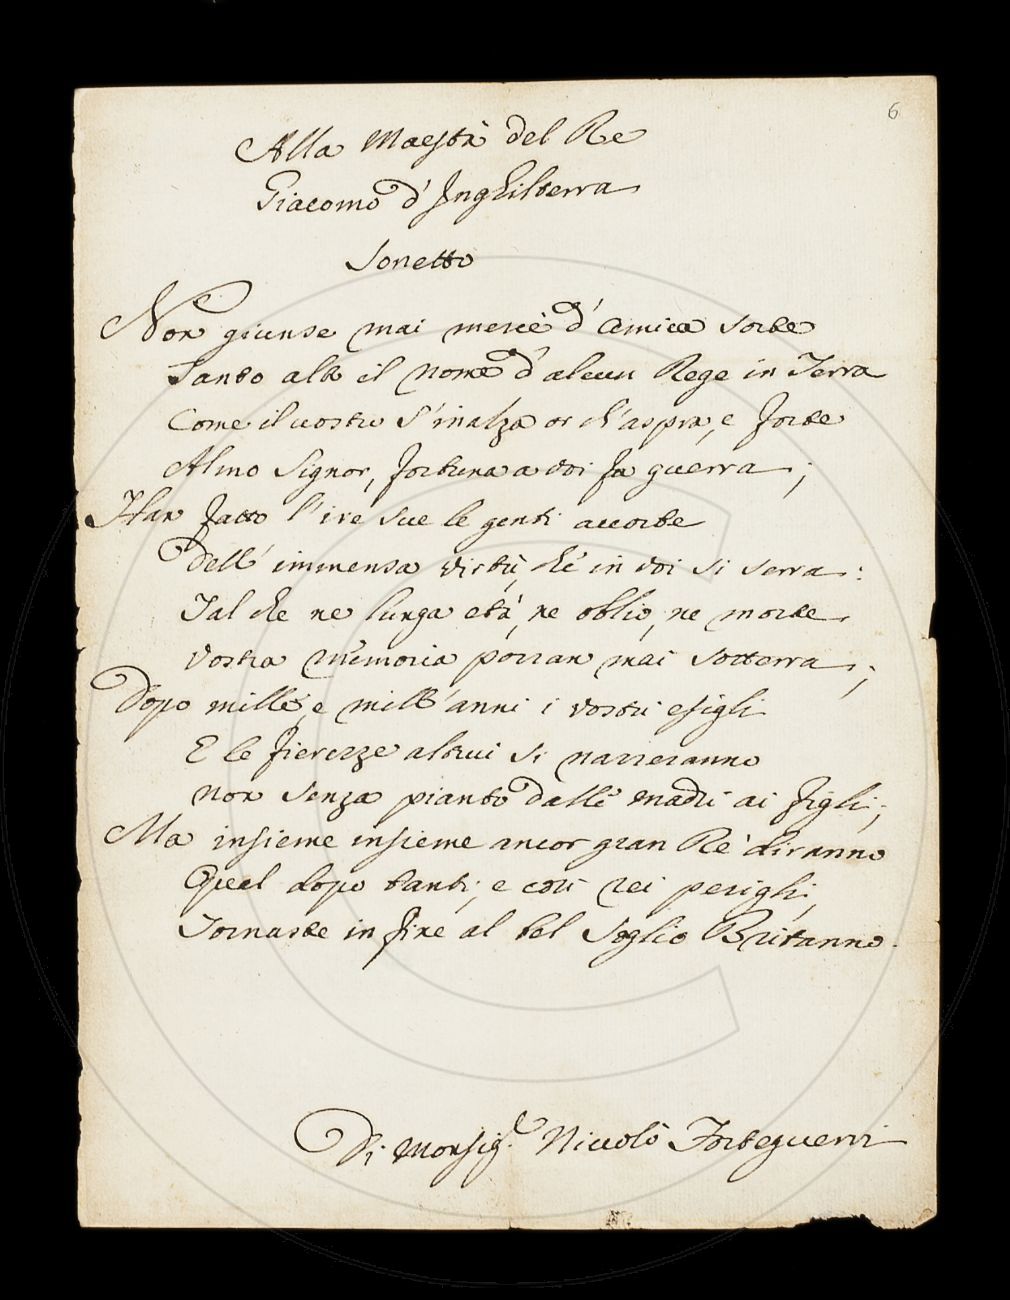 6
Alla Maestà del Re
Giacomo d'Inghilterra
Sonetto
Non giunse mai mercè d'amica sorte
Tanto alto il nome d'alcun Rege in Terra
Come il vostro s'inalza or ch'aspra, e forte
Almo Signor, fortuna a voi fa guerra;
Han fatto l'ire sue le genti accorte
Dell'immensa virtù, ch'in voi si serra:
Tal che ne lunga età, ne oblio, ne morte
Vostra memoria porran mai sotterra;
Dopo mille, e mill'anni i vostri esigli
E le fierezze altrui si narreranno
Non senza pianto dalle madri ai figli;
Ma insieme insieme ancor gran Rè diranno
Qual dopo tanti, e così rei perigli,
Tornaste in fine al bel Soglio Britanno.
Di Monsig.e Niccolò Forteguerri